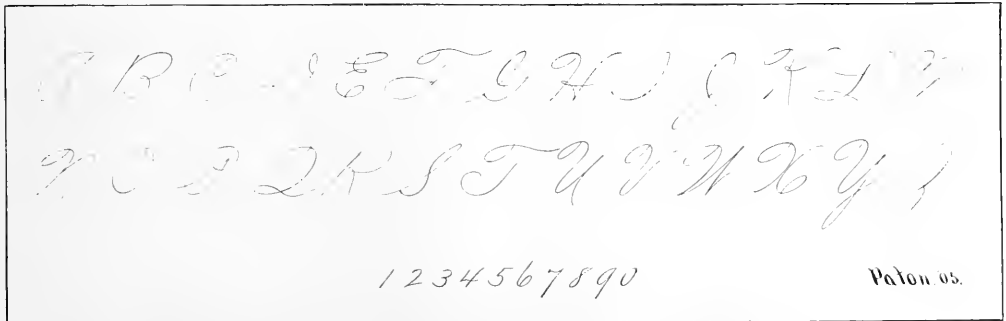 A B C D E F G H I J K L M
N O P Q R S T U V W X Y Z
1 2 3 4 5 6 7 8 9 0
Paton 05.